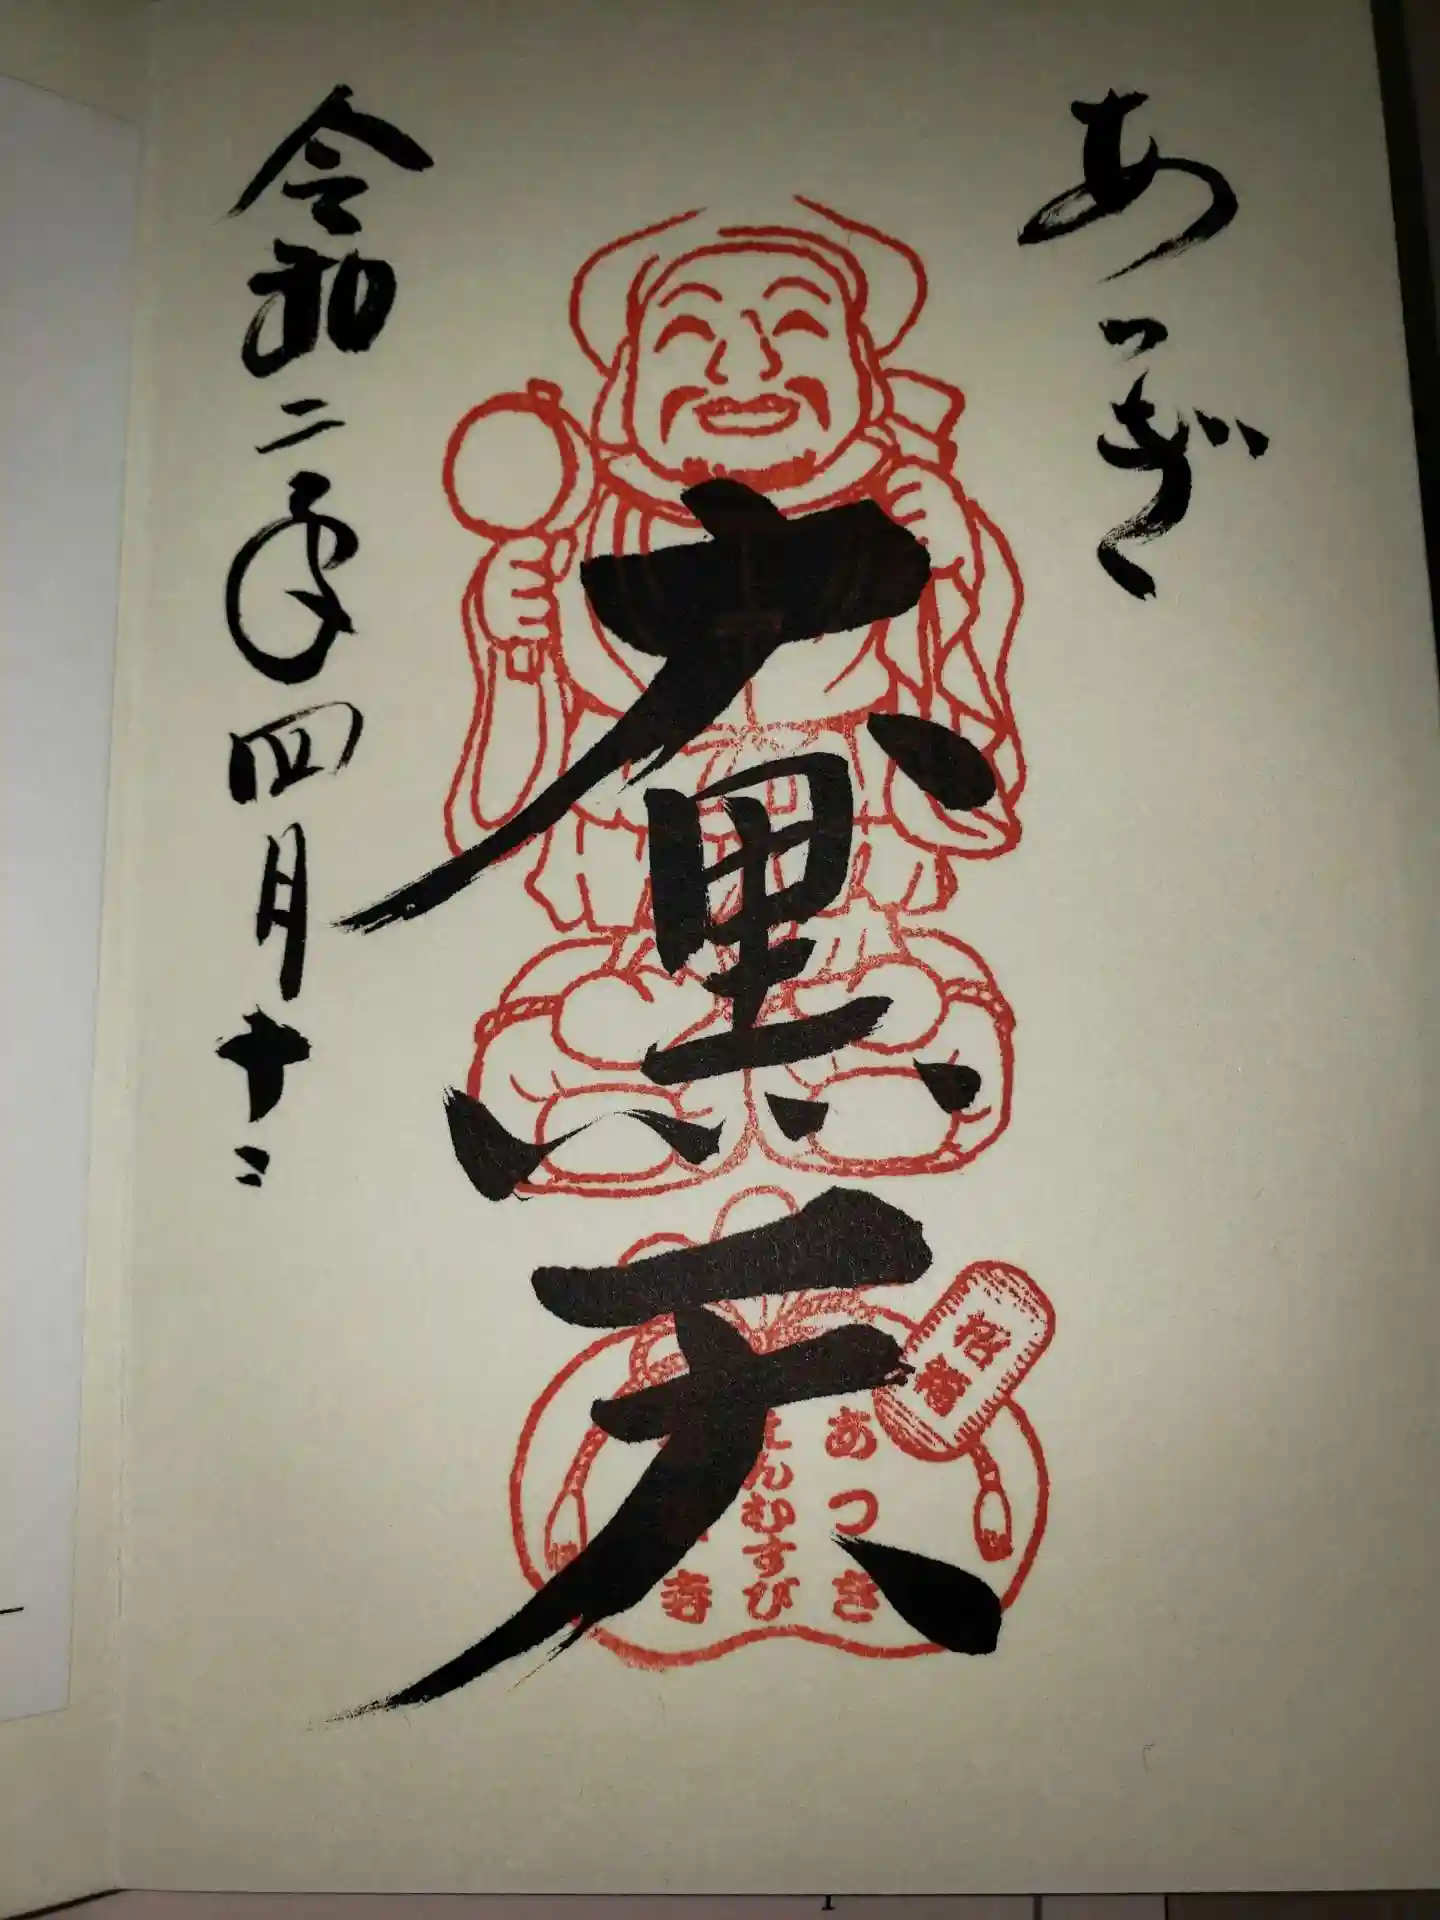 あつぎ
大黒天
令和二年四月十二
招福
あつぎ
えんむすび
寺